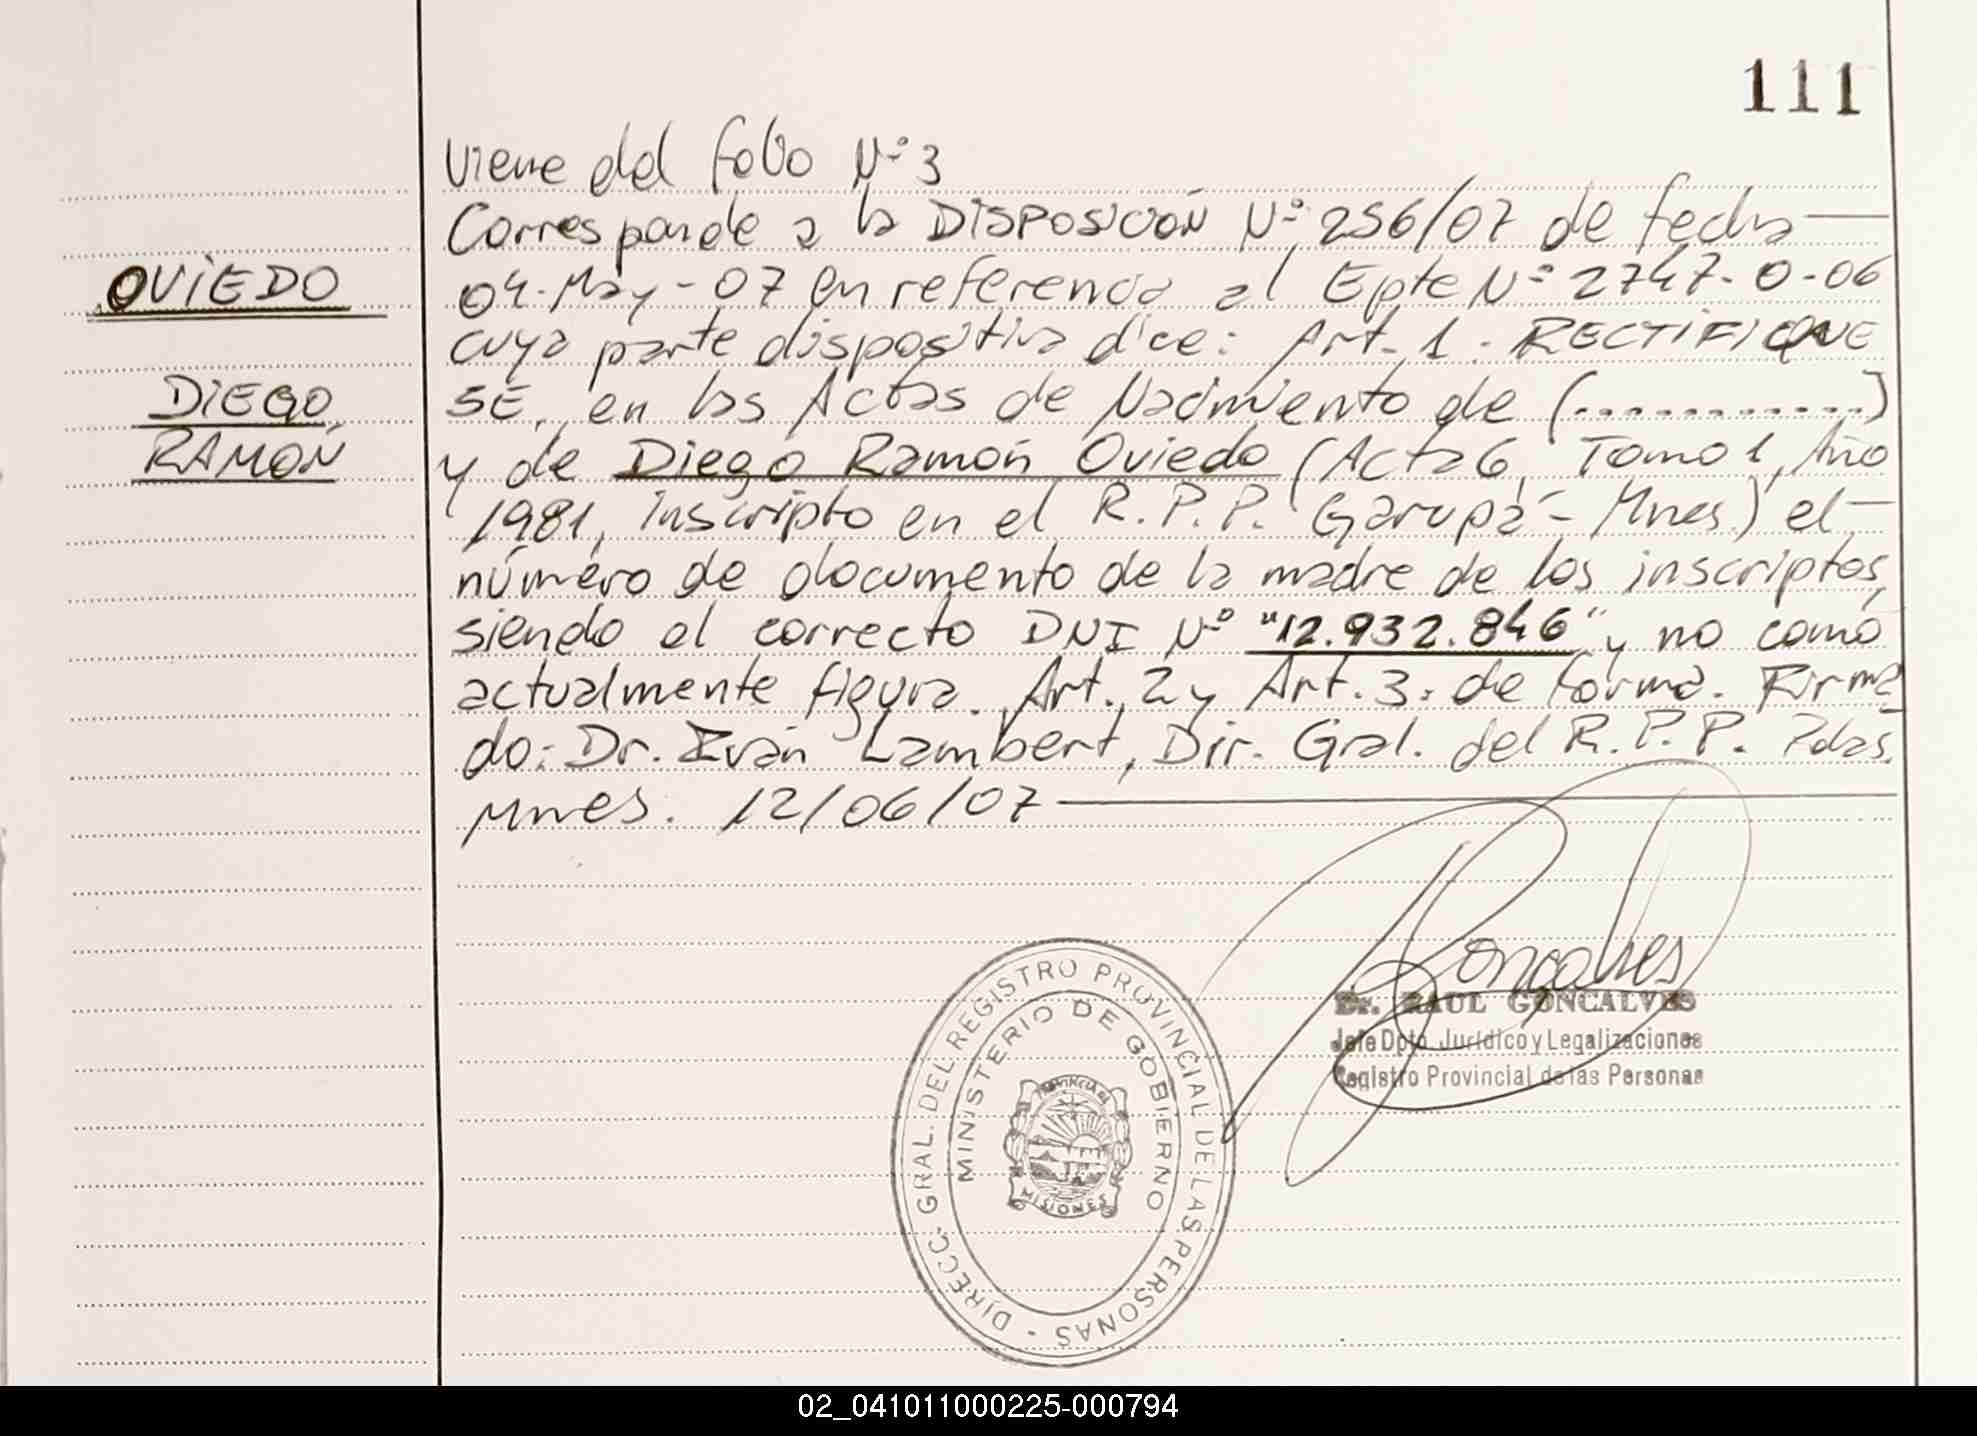 111
Viene del folio Nº 3
Corresponde a la DISPOSICIÓN Nº 256/07 de fecha
OVIEDO
04-May-07 en referencia al Epte Nº 2747-O-06
cuya parte dispositiva dice: Art. 1. RECTIFIQUE
DIEGO
SE, en las Actas de Nacimiento de (............)
RAMÓN
y de Diego Ramón Oviedo (Acta 6, Tomo 1, Año
1981, inscripto en el R.P.P. Garupá - Mnes.) el
número de documento de la madre de los inscriptos,
siendo el correcto DNI Nº "12.932.846" y no como
actualmente figura. Art. 2 y Art. 3: de forma. Firma
do: Dr. Iván Lambert, Dir. Gral. del R.P.P. Pdas.
Mnes. 12/06/07
Goncalves
Dr. RAUL GONCALVES
Jefe Dpto. Jurídico y Legalizaciones
Registro Provincial de las Personas
DIRECC. GRAL. DEL REGISTRO PROVINCIAL DE LAS PERSONAS -
MINISTERIO DE GOBIERNO
PROVINCIA DE
MISIONES
02_041011000225-000794